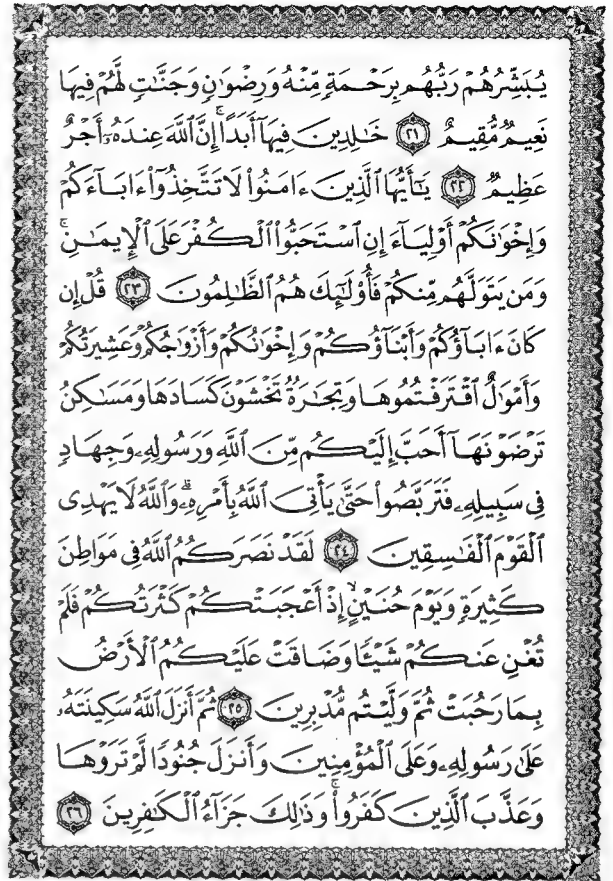 يُبَشِّرُهُمْ رَبُّهُم بِرَحْمَةٍ مِّنْهُ وَرِضْوَٰنٍ وَجَنَّٰتٍ لَّهُمْ فِيهَا
نَعِيمٌ مُّقِيمٌ ٢١ خَٰلِدِينَ فِيهَآ أَبَدًا ۚ إِنَّ ٱللَّهَ عِندَهُۥٓ أَجْرٌ
عَظِيمٌ ٢٢ يَٰٓأَيُّهَا ٱلَّذِينَ ءَامَنُوا۟ لَا تَتَّخِذُوٓا۟ ءَابَآءَكُمْ
وَإِخْوَٰنَكُمْ أَوْلِيَآءَ إِنِ ٱسْتَحَبُّوا۟ ٱلْكُفْرَ عَلَى ٱلْإِيمَٰنِ ۚ
وَمَن يَتَوَلَّهُم مِّنكُمْ فَأُو۟لَٰٓئِكَ هُمُ ٱلظَّٰلِمُونَ ٢٣ قُلْ إِن
كَانَ ءَابَآؤُكُمْ وَأَبْنَآؤُكُمْ وَإِخْوَٰنُكُمْ وَأَزْوَٰجُكُمْ وَعَشِيرَتُكُمْ
وَأَمْوَٰلٌ ٱقْتَرَفْتُمُوهَا وَتِجَٰرَةٌ تَخْشَوْنَ كَسَادَهَا وَمَسَٰكِنُ
تَرْضَوْنَهَآ أَحَبَّ إِلَيْكُم مِّنَ ٱللَّهِ وَرَسُولِهِۦ وَجِهَادٍ
فِى سَبِيلِهِۦ فَتَرَبَّصُوا۟ حَتَّىٰ يَأْتِىَ ٱللَّهُ بِأَمْرِهِۦ ۗ وَٱللَّهُ لَا يَهْدِى
ٱلْقَوْمَ ٱلْفَٰسِقِينَ ٢٤ لَقَدْ نَصَرَكُمُ ٱللَّهُ فِى مَوَاطِنَ
كَثِيرَةٍ ۙ وَيَوْمَ حُنَيْنٍ ۙ إِذْ أَعْجَبَتْكُمْ كَثْرَتُكُمْ فَلَمْ
تُغْنِ عَنكُمْ شَيْـًٔا وَضَاقَتْ عَلَيْكُمُ ٱلْأَرْضُ
بِمَا رَحُبَتْ ثُمَّ وَلَّيْتُم مُّدْبِرِينَ ٢٥ ثُمَّ أَنزَلَ ٱللَّهُ سَكِينَتَهُۥ
عَلَىٰ رَسُولِهِۦ وَعَلَى ٱلْمُؤْمِنِينَ وَأَنزَلَ جُنُودًا لَّمْ تَرَوْهَا
وَعَذَّبَ ٱلَّذِينَ كَفَرُوا۟ ۚ وَذَٰلِكَ جَزَآءُ ٱلْكَٰفِرِينَ ٢٦